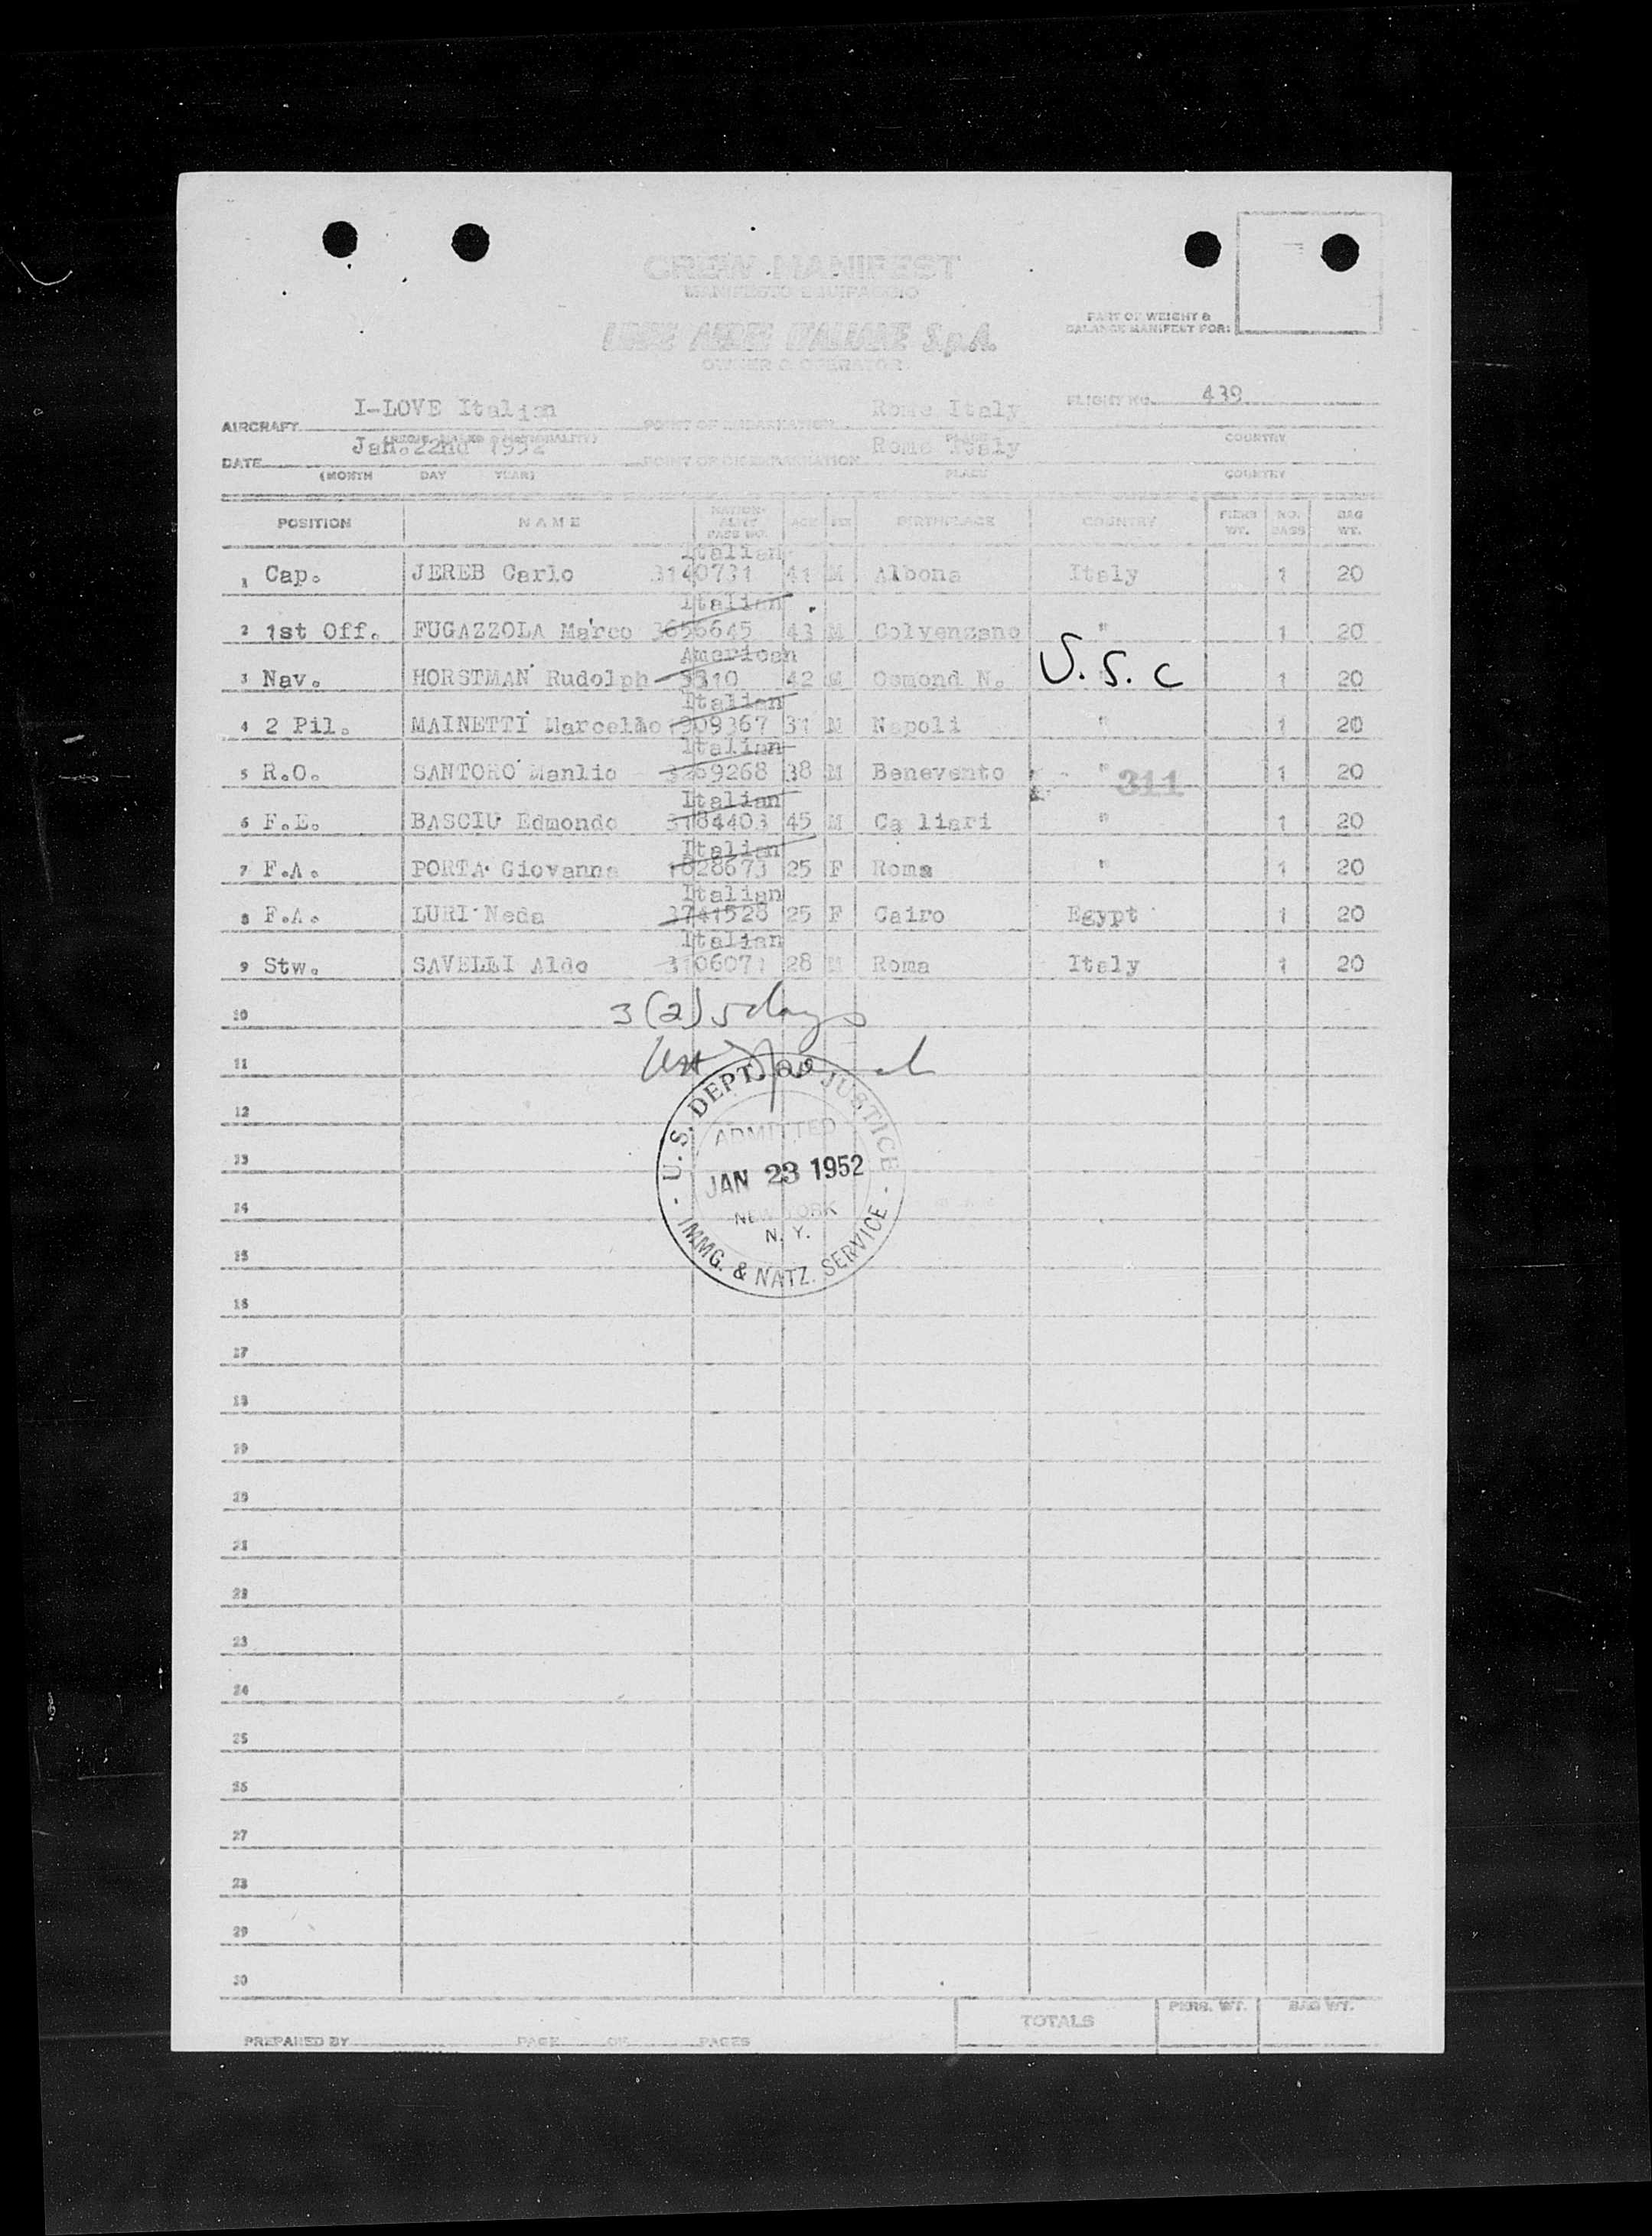 CREW MANIFEST
MANIFESTO EQUIPAGGIO
LINEE AEREE ITALIANE S.p.A.
OWNER & OPERATOR
PART OF WEIGHT &
BALANCE MANIFEST FOR:
FLIGHT NO. 439
AIRCRAFT I-LOVE Italian POINT OF EMBARKATION Rome Italy
(REGIS. MARKS & NATIONALITY) PLACE COUNTRY
DATE Jan.22nd 1952 POINT OF DISEMBARKATION Rome Italy
(MONTH DAY YEAR) PLACE COUNTRY
POSITION NAME NATION-ALITY PASS NO. AGE SEX BIRTHPLACE COUNTRY PERS WT. NO. PASS BAG WT.
Italian
1 Cap. JEREB Carlo 3140731 41 M Albona Italy 1 20
Italian
2 1st Off. FUGAZZOLA Marco 3656645 43 M Colvenzano " 1 20
American
3 Nav. HORSTMAN Rudolph 3310 42 M Osmond N. U.S.C 1 20
Italian
4 2 Pil. MAINETTI Marcello 909367 31 M Napoli " 1 20
Italian
5 R.O. SANTORO Manlio 3269268 38 M Benevento " 311 1 20
Italian
6 F.E. BASCIU Edmondo 3184403 45 M Ca liari " 1 20
Italian
7 F.A. PORTA Giovanna 1828673 25 F Roma " 1 20
Italian
8 F.A. LURI Neda 3741528 25 F Cairo Egypt 1 20
Italian
9 Stw. SAVELLI Aldo 3106071 28 M Roma Italy 1 20
10
3(2) 5 days
11
12
13
14
15
16
17
18
19
20
21
22
23
24
25
26
27
28
29
30
U.S. DEPT. OF JUSTICE
ADMITTED
JAN 23 1952
NEW YORK
N.Y.
IMMG. & NATZ. SERVICE
TOTALS PERS. WT. BAG WT.
PREPARED BY PAGE OF PAGES